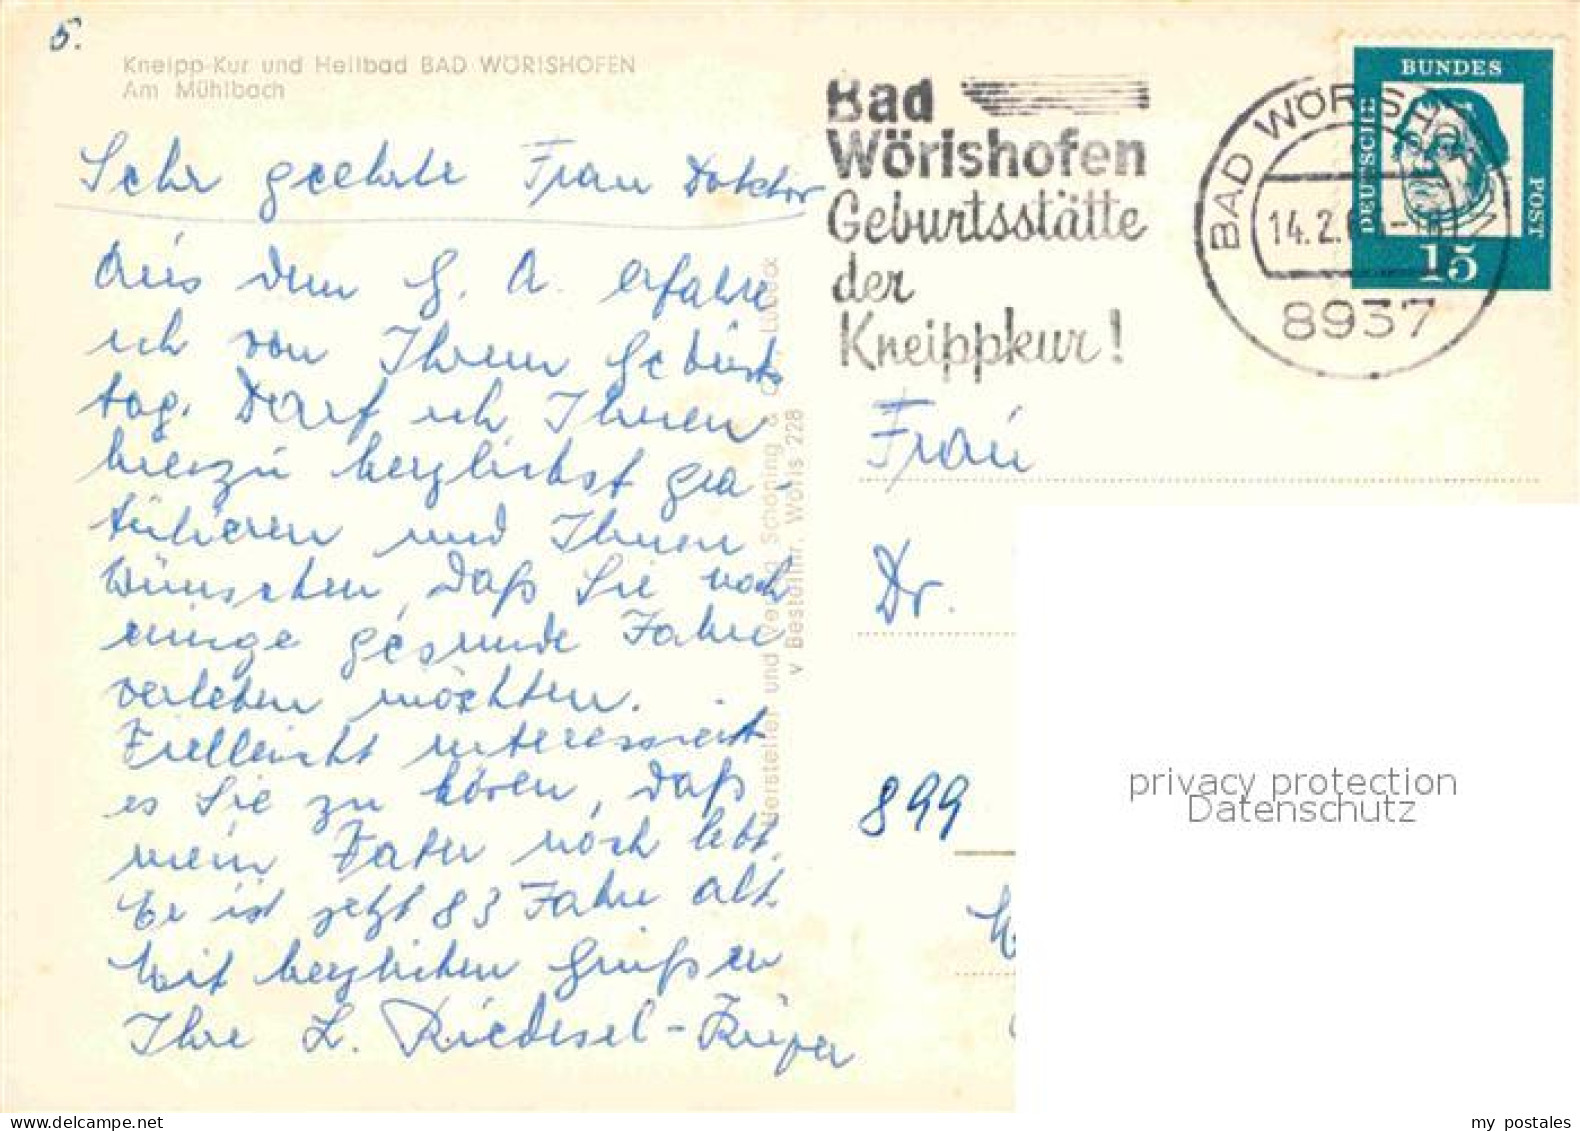 5.
Kneipp-Kur und Heilbad BAD WÖRISHOFEN
Am Mühlbach
Sehr geehrte Frau Doktor
Aus dem G. A. erfahre
ich von Ihrem Geburts
tag. Darf ich Ihnen
hierzu herzlichst gra-
tulieren und Ihnen
wünschen, daß Sie noch
einige gesunde Jahre
verleben möchten.
Vielleicht interessiert
es Sie zu hören, daß
mein Vater noch lebt.
Er ist jetzt 83 Jahre alt.
Mit herzlichen Grüßen
Ihre L. Riedesel-
Hersteller und Verlag Schöning & Co., Lübeck
v Bestellnr. Wöris 228
Bad
Wörishofen
Geburtsstätte
der
Kneippkur!
BAD WÖRISHOFEN
14.2.6
8937
DEUTSCHE
BUNDES
POST
15
Frau
Dr.
899
privacy protection
Datenschutz
my postales